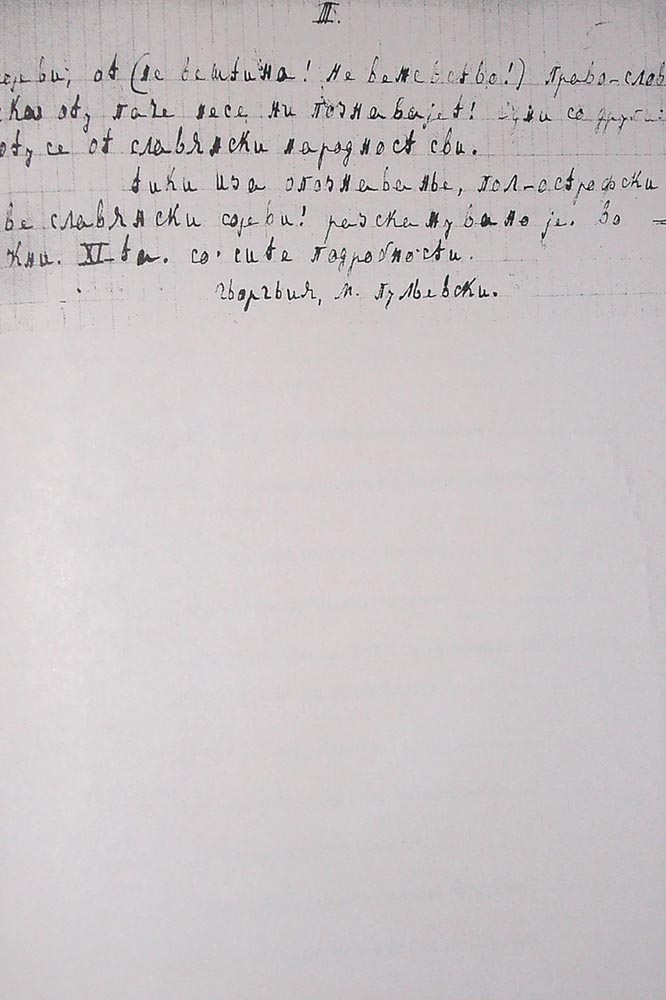 III.
сојеви, от (не вештина! не вежевство!) право-слав
оту паче несе ни познавајет! едни со други
оту се от славянски народност сви.
тики иза опознаванье, пол-острофски
ве славянски сојеви! разскажувано је. во =
кни. XI-та. со сите подробности.
Гьоргьия, м. Пульевски.